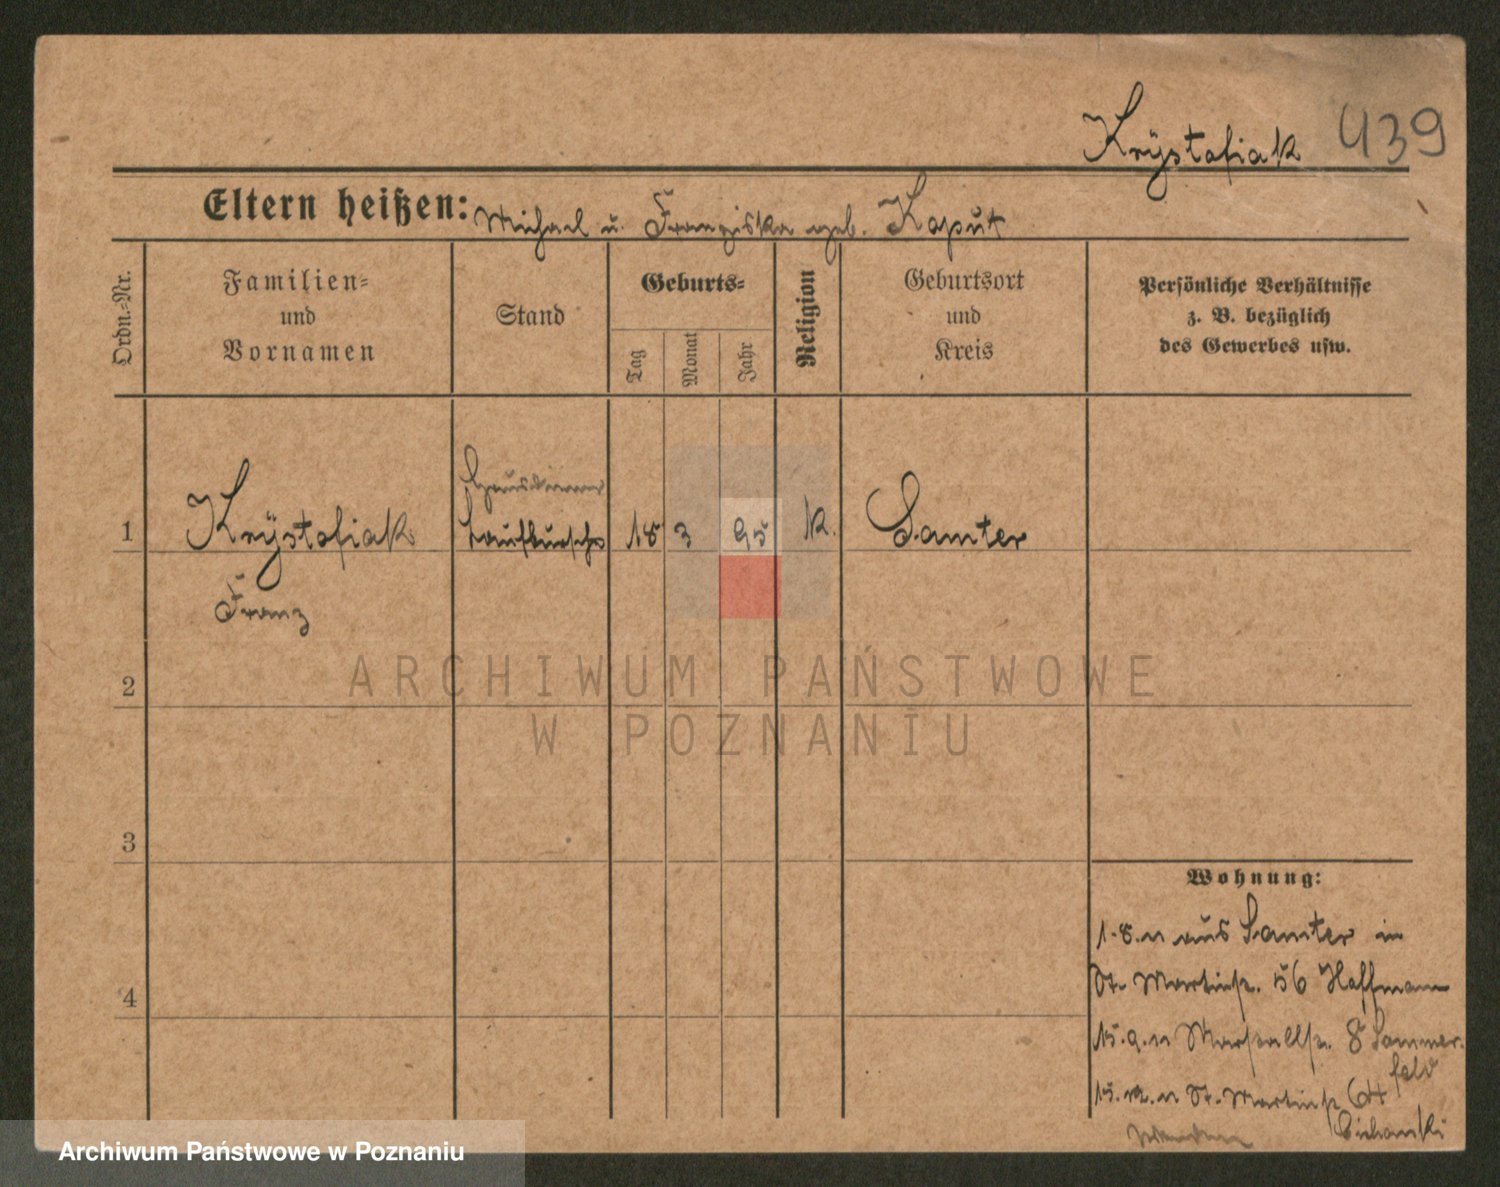 Krystofiak 439
Eltern heißen: Michael u. Franziska geb. Kaput
Ordn.-Nr.
Familien-
und
Vornamen
Stand
Geburts-
Tag
Monat
Jahr
Religion
Geburtsort
und
Kreis
Persönliche Verhältnisse
z. B. bezüglich
des Gewerbes usw.
Hausdiener
1 Krystofiak Laufbursche 18 3 95 K. Samter
Franz
2
3
4
Wohnung:
1.8.11 aus Samter in
St. Martinstr. 56 Hoffmann
15.9.11 8 Sommer-
feld
St. Martinstr 64
Cichanski
ARCHIWUM PAŃSTWOWE
W POZNANIU
Archiwum Państwowe w Poznaniu